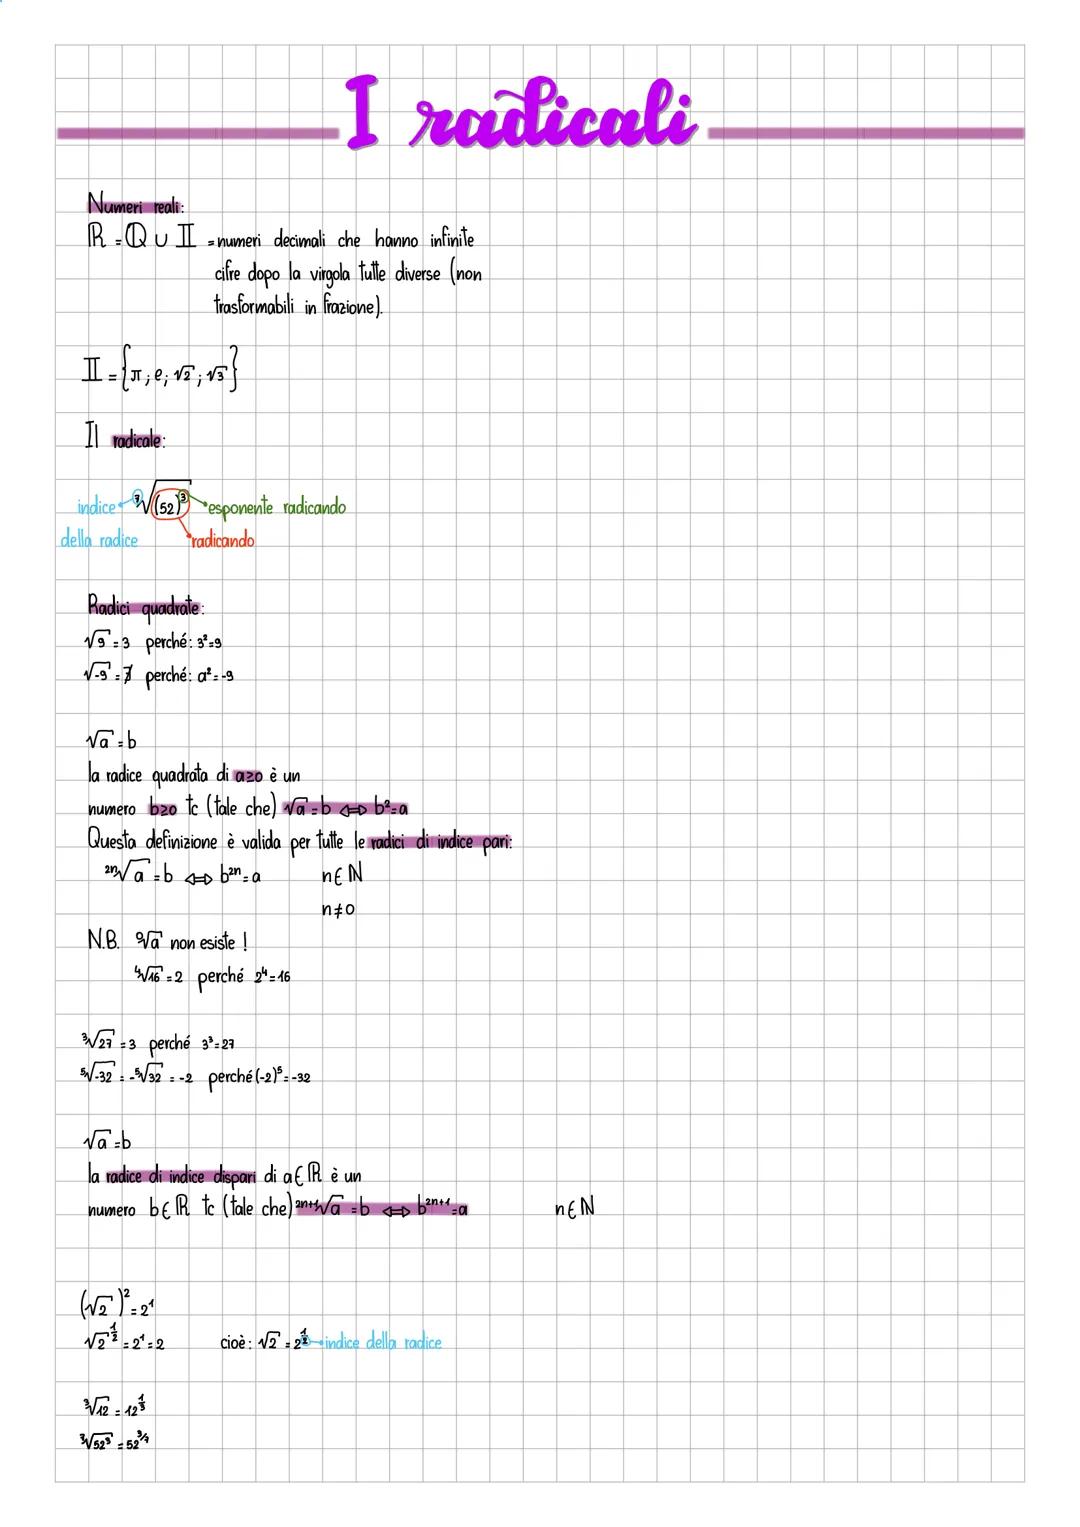 I radicali
Numeri reali:
ℝ = ℚ ∪ 𝕀 = numeri decimali che hanno infinite
cifre dopo la virgola tutte diverse (non
trasformabili in frazione).
𝕀 = {π; e; √2; √3}
Il radicale:
indice ⁷√(52)³ esponente radicando
della radice radicando
Radici quadrate:
√9 = 3 perché: 3² = 9
√-9 = ∄ perché: a² = -9
√a = b
la radice quadrata di a≥0 è un
numero b≥0 tc (tale che) √a = b ⇔ b² = a
Questa definizione è valida per tutte le radici di indice pari:
²ⁿ√a = b ⇔ b²ⁿ = a n ∈ ℕ
n ≠ 0
N.B. ⁰√a non esiste !
⁴√16 = 2 perché 2⁴ = 16
³√27 = 3 perché 3³ = 27
⁵√-32 = -⁵√32 = -2 perché (-2)⁵ = -32
√a = b
la radice di indice dispari di a ∈ ℝ è un
numero b ∈ ℝ tc (tale che) ²ⁿ⁺¹√a = b ⇔ b²ⁿ⁺¹ = a n ∈ ℕ
(√2)² = 2¹
√2^½ = 2¹ = 2 cioè: √2 = 2^½ indice della radice
³√12 = 12^⅓
⁷√52³ = 52^3/7